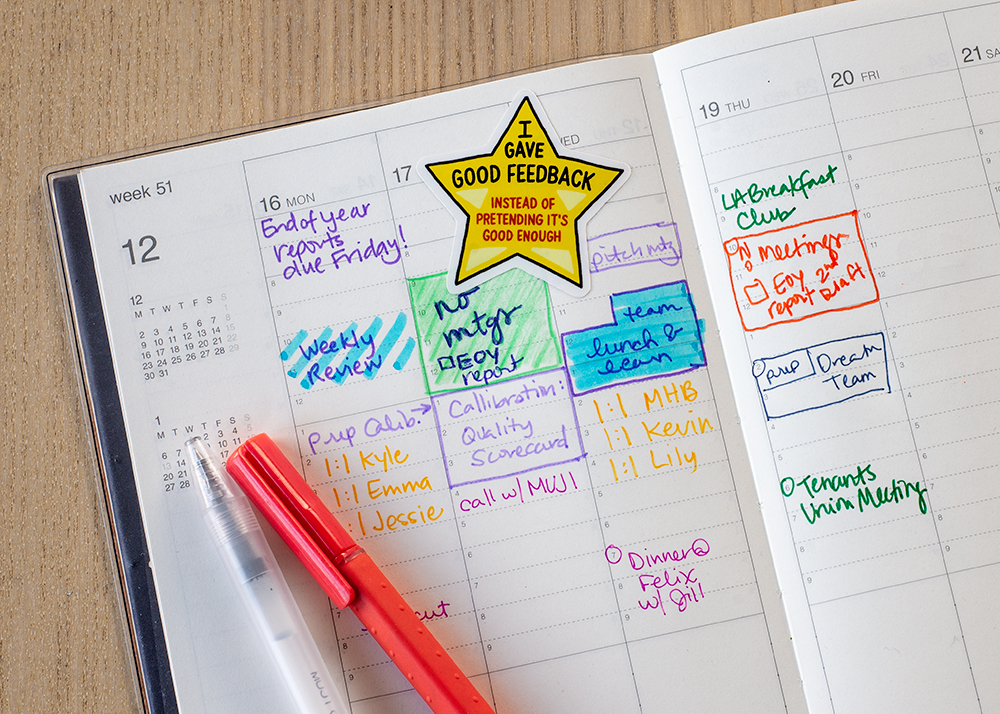 week 51
12
12
M T W T F S S
1
2 3 4 5 6 7 8
9 10 11 12 13 14 15
16 17 18 19 20 21 22
23 24 25 26 27 28 29
30 31
1
M T W T F S S
16 MON
End of year
reports
due Friday!
Weekly
Review
prep Calib.→
1:1 Kyle
1:1 Emma
1:1 Jessie
17
I
GAVE
GOOD FEEDBACK
INSTEAD OF
PRETENDING IT'S
GOOD ENOUGH
No
mtgs
EOY
report
Callibration:
Quality
Scorecard
call w/ MUJI
pitch mtg
team
lunch &
learn
1:1 MHB
1:1 Kevin
1:1 Lily
Dinner@
Felix
w/ Jill
19 THU
LA Breakfast
Club
No Meetings
EOY 2nd
report Draft
prep
Dream
Team
Tenants
Union Meeting
20 FRI
21 SA
MUJI